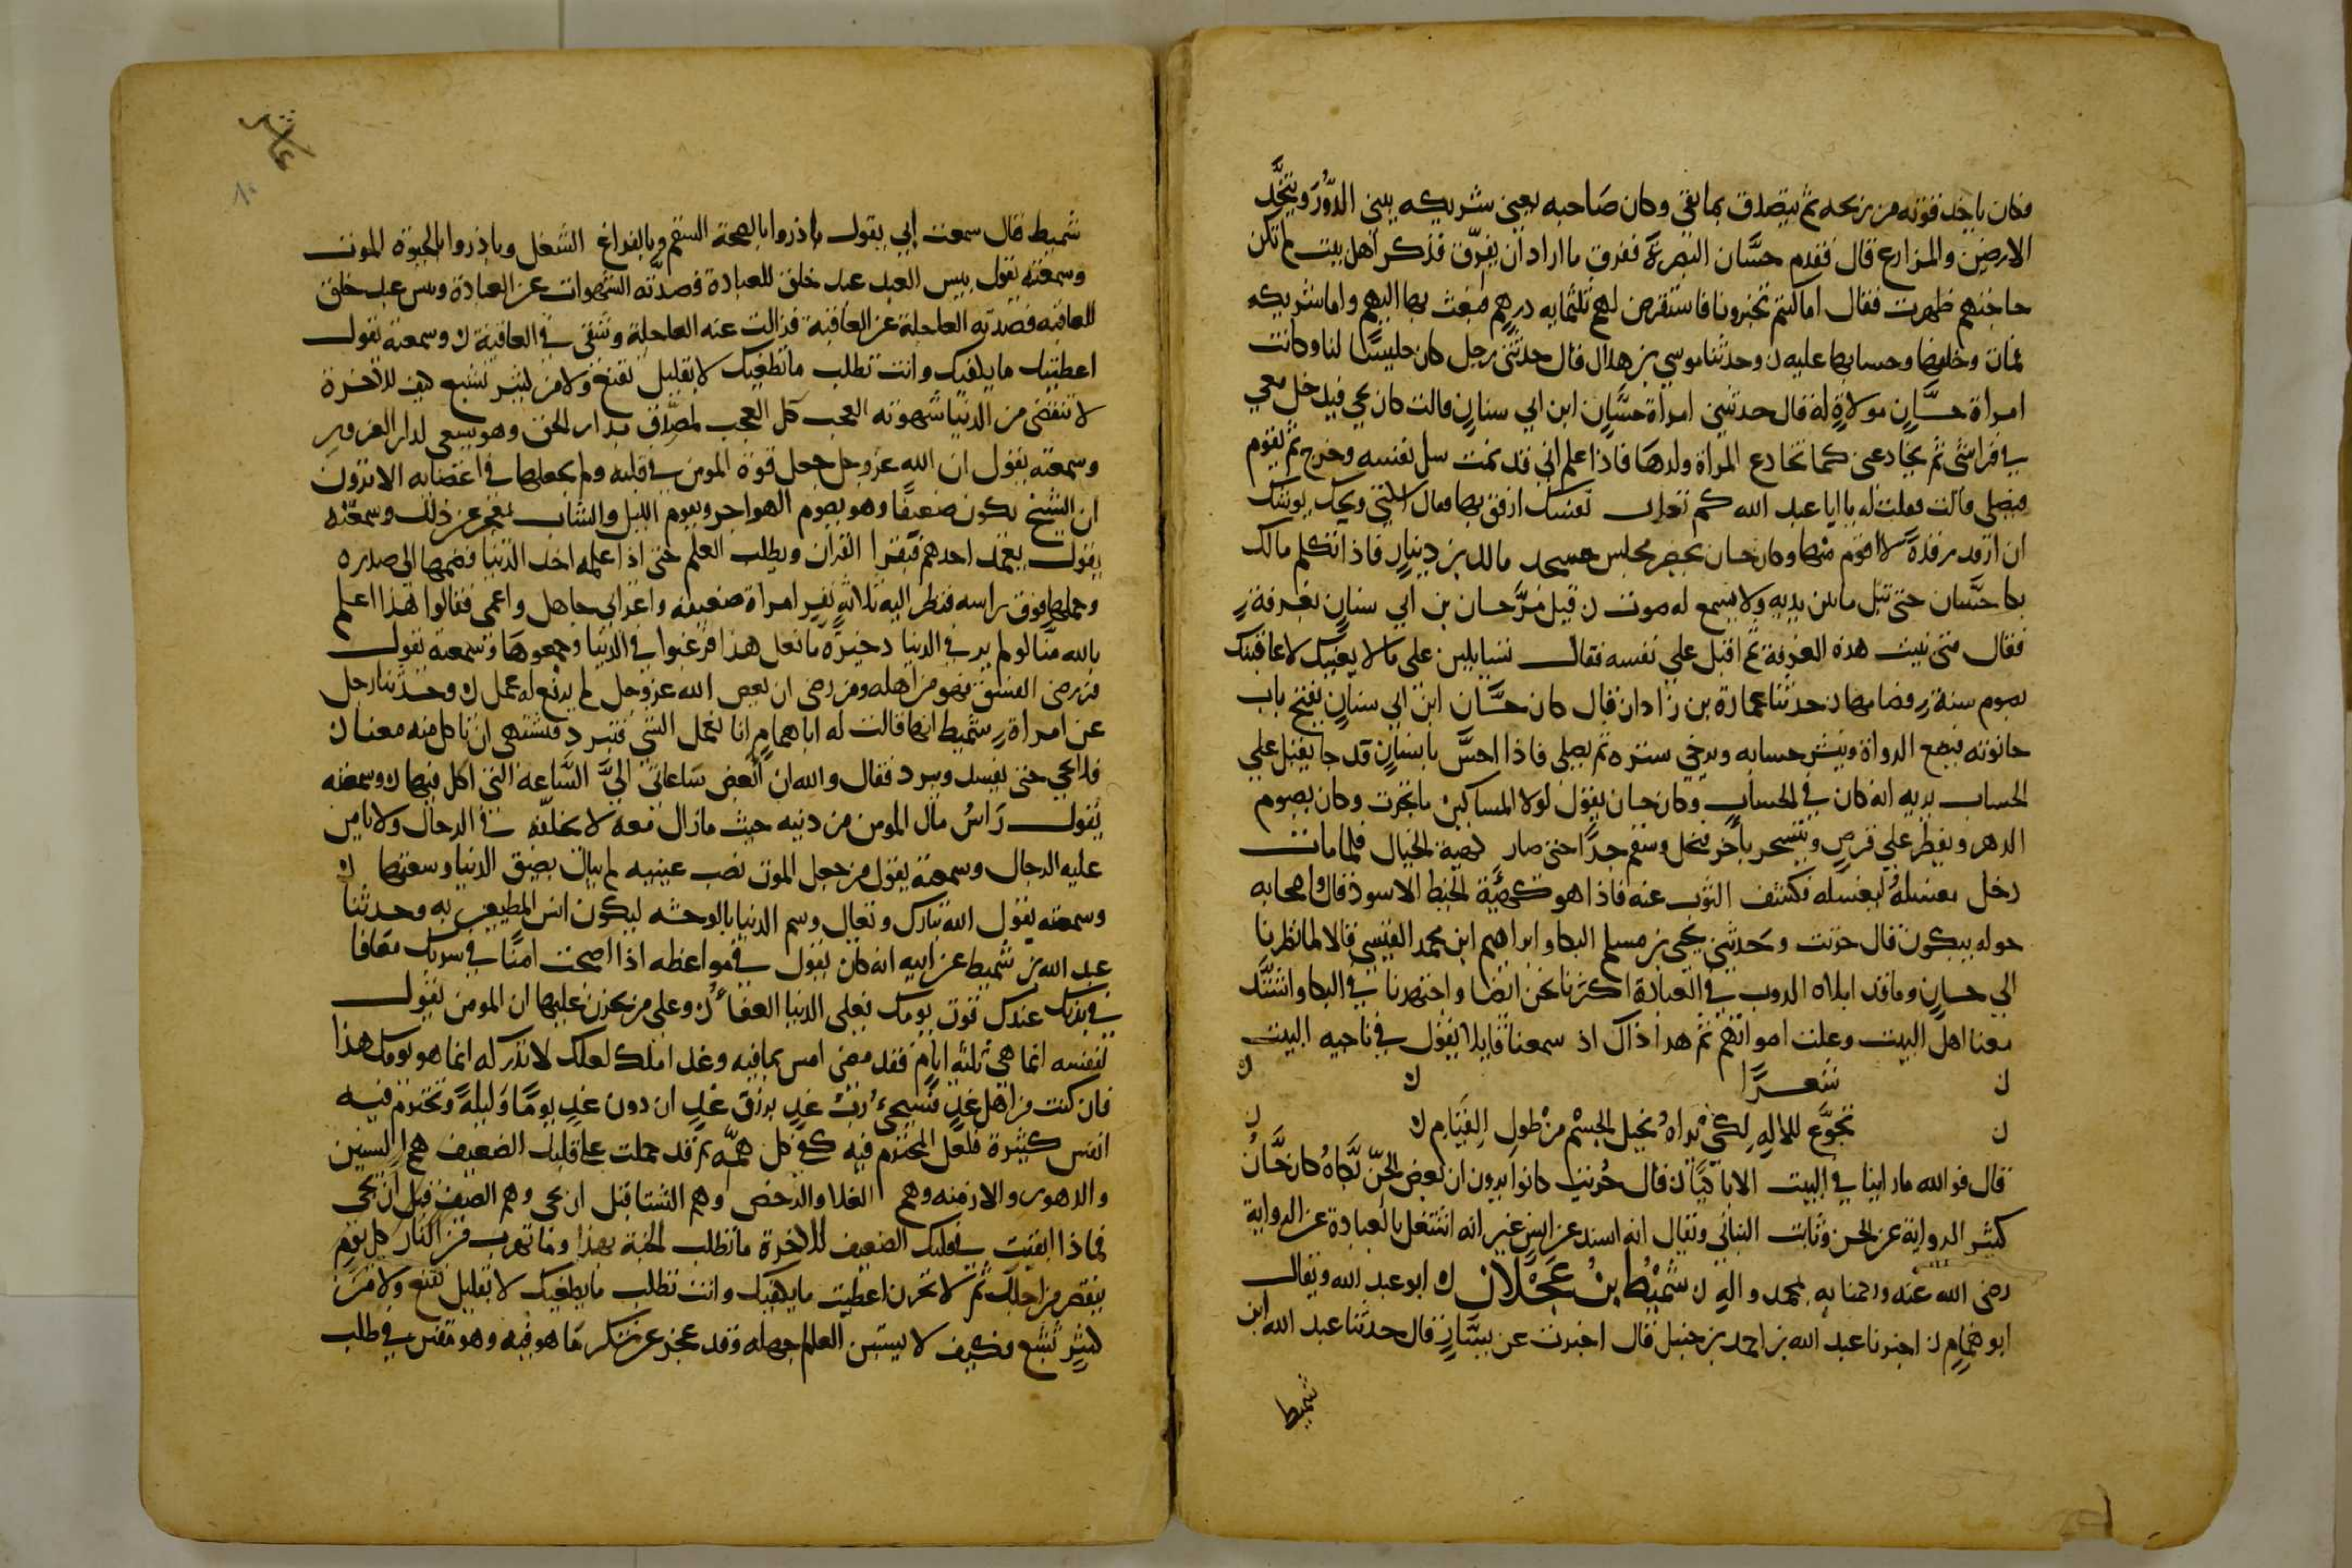 فكان ياخذ قوته من ربحه ثم يتصدق بما بقى وكان صاحبه يعني شريكه يبني الدور ويتخذ
الارضين والمزارع قال فقدم حسان البصرة ففرق ما اراد ان يفرق فذكر اهل بيت لم تكن
حاجتهم ظهرت فقال اما كنتم تخبرونا فاستقرض لهم ثلثمايه درهم فبعث بها اليهم واما شريكه
فمات وحسابها عليه ن وحدثنا موسي بن هلال قال حدثني رجل كان جليسا لنا وكانت
امراة حسان مولاة له قال حدثتني امراة حسان ابن ابي سنان قالت كان يجي فيدخل معي
في فراشي ثم يخادعني كما تخادع المراة ولدها فاذا علم اني قد نمت سل نفسه وخرج ثم يقوم
فيصلي قالت فقلت له يا ابا عبد الله كم تعذب نفسك ارفق بها فقال اسكتي ويحك يوشك
ان ارقد رقدة لا اقوم منها وكان حسان يحضر مجلس مسجد مالك بن دينار فاذا تكلم مالك
بكا حسان حتى تبل ما بين يديه ولا يسمع له صوت ن قيل مر حسان بن ابي سنان بغرفة
فقال متى بنيت هذه الغرفة ثم اقبل علي نفسه فقال تسايلين على ما لا يعنيك لاعاقبنك
بصوم سنة فصامها ن حدثنا عمارة بن زادان قال كان حسان ابن ابي سنان يفتح باب
حانوته فيضع الدواة وينشر حسابه ويرخي ستره ثم يصلي فاذا احس بانسان قد جا يقبل علي
الحساب يريه انه كان في الحساب وكان حسان يقول لولا المساكين ما تجرت وكان يصوم
الدهر ويفطر علي قرص ويتسحر باخر فنحل وسقم جدا حتى صار كهية الخيال فلما مات
دخل مغتسله ليغسله فكشف الثوب عنه فاذا هو كهية الخيط الاسود قال واصحابه
حوله يبكون قال حرنت وحدثني يحيى بن مسلم البكا وابراهيم ابن محمد القيسي قالا لما نظرنا
الي حسان وما قد ابلاه الدوب في العبادة اكثرنا نحن ايضا واجتهدنا في البكا واشتد
معنا اهل البيت وعلت اصواتهم ثم هدا ذاك اذ سمعنا قايلا يقول في ناحيه البيت
ن شعرا ن ن
ن تجوع للاله لكي يراه نحيل الجسم من طول القيام ن ن
قال فوالله ما راينا في البيت الا باكيا ن قال حرنت كانوا يرون ان بعض الجن بكاه كان حسان
كثير الرواية عن الحسن وثابت البناني ويقال انه اسند عن انس غير انه اشتغل بالعبادة عن الرواية
رضى الله عنه ورحمنا به بمحمد واله ن شميط بن عجلان ن ابو عبد الله ويقال
ابو همام ن اخبرنا عبد الله بن احمد بن حنبل قال اخبرت عن سيار قال حدثنا عبد الله ابن
شميط
عاشر
شميط قال سمعت ابي يقول بادروا بالصحة السقم وبالفراغ الشغل وبادروا بالحيوة الموت
وسمعته يقول بيس العبد عبد خلق للعبادة فصدته الشهوات عن العبادة وبيس عبد خلق
للعاقبه فصدته العاجلة عن العاقبة فزالت عنه العاجلة وشقى في العاقبة ن وسمعته يقول
اعطيت ما يكفيك وانت تطلب ما يطغيك لا بقليل تقنع ولا من كثير تشبع كيف للآخرة
لا تنقضى من الدنيا شهوته العجب كل العجب لمصدق بدار الحق وهو يسعى لدار الغرور
وسمعته يقول ان الله عز وجل جعل قوة المومن في قلبه ولم يجعلها في اعضايه الا ترون
ان الشيخ يكون ضعيفا وهو يصوم الهواجر ويقوم الليل والشاب يعجز عن ذلك وسمعته
يقول يعمد احدهم فيقرا القران ويطلب العلم حتى اذا علمه اخذ الدنيا فضمها الى صدره
وحملها فوق راسه فنظر اليه ثلاثة نفر امراة ضعيفه واعرابي جاهل واعمى فقالوا هذا اعلم
بالله منا لو لم ير في الدنيا ذخيرة ما فعل هذا فرغبوا في الدنيا وجمعوها وسمعته يقول
من رضى الفسق فهو من اهله ومن رضى ان يعصى الله عز وجل لم يرفع له عمل ن وحدثنا رجل
عن امراة شميط انها قالت له ابا همام انا نعمل الشي فتبرد فنشتهى ان تاكل منه معنا ن
فلا تجي حتى يفسد ويبرد فقال والله ان ابغض ساعاتي الي الساعة التي اكل فيها ن وسمعته
يقول راس مال المومن من دنيه حيث ما زال معه لا يخلفه في الرحال ولا يامن
عليه الرجال وسمعته يقول من جعل الموت نصب عينيه لم يبال بضيق الدنيا وسعتها ن
وسمعته يقول الله تبارك وتعالي وسم الدنيا بالوحشه ليكون انس المطيعين به وحدثنا
عبد الله بن شميط عن ابيه انه كان يقول في مواعظه اذا اصبحت امنا في سربك معافا
في بدنك عندك قوت يومك فعلى الدنيا العفا ن وعلى من يحزن عليها ان المومن يقول
لنفسه انما هي ثلثه ايام فقد مضى امس بما فيه وغد املك لعلك لا تدركه انما هو يومك هذا
فان كنت من اهل غد فسيجيء رب غد برزق غد ان دون غد يوما وليلة وتخترم فيه
انفس كثيرة فلعل المخترم فيه كفى كل همه ثم قد حملت على قلبك الضعيف هم السنين
والدهور والازمنه وهم الغلا والرخص وهم الشتا قبل ان يجى وهم الصيف قبل ان يجى
فماذا ابقيت من قلبك الضعيف للآخرة ما تطلب الجنة بهذا وما تهرب من النار كل يوم
ينقص من اجلك ثم لا تحزن اعطيت ما يكفيك وانت تطلب ما يطغيك لا بقليل تقنع ولا من
كثير تشبع وكيف لا يستبين العالم جهله وقد عجز عن شكر ما هو فيه وهو مفتن في طلب